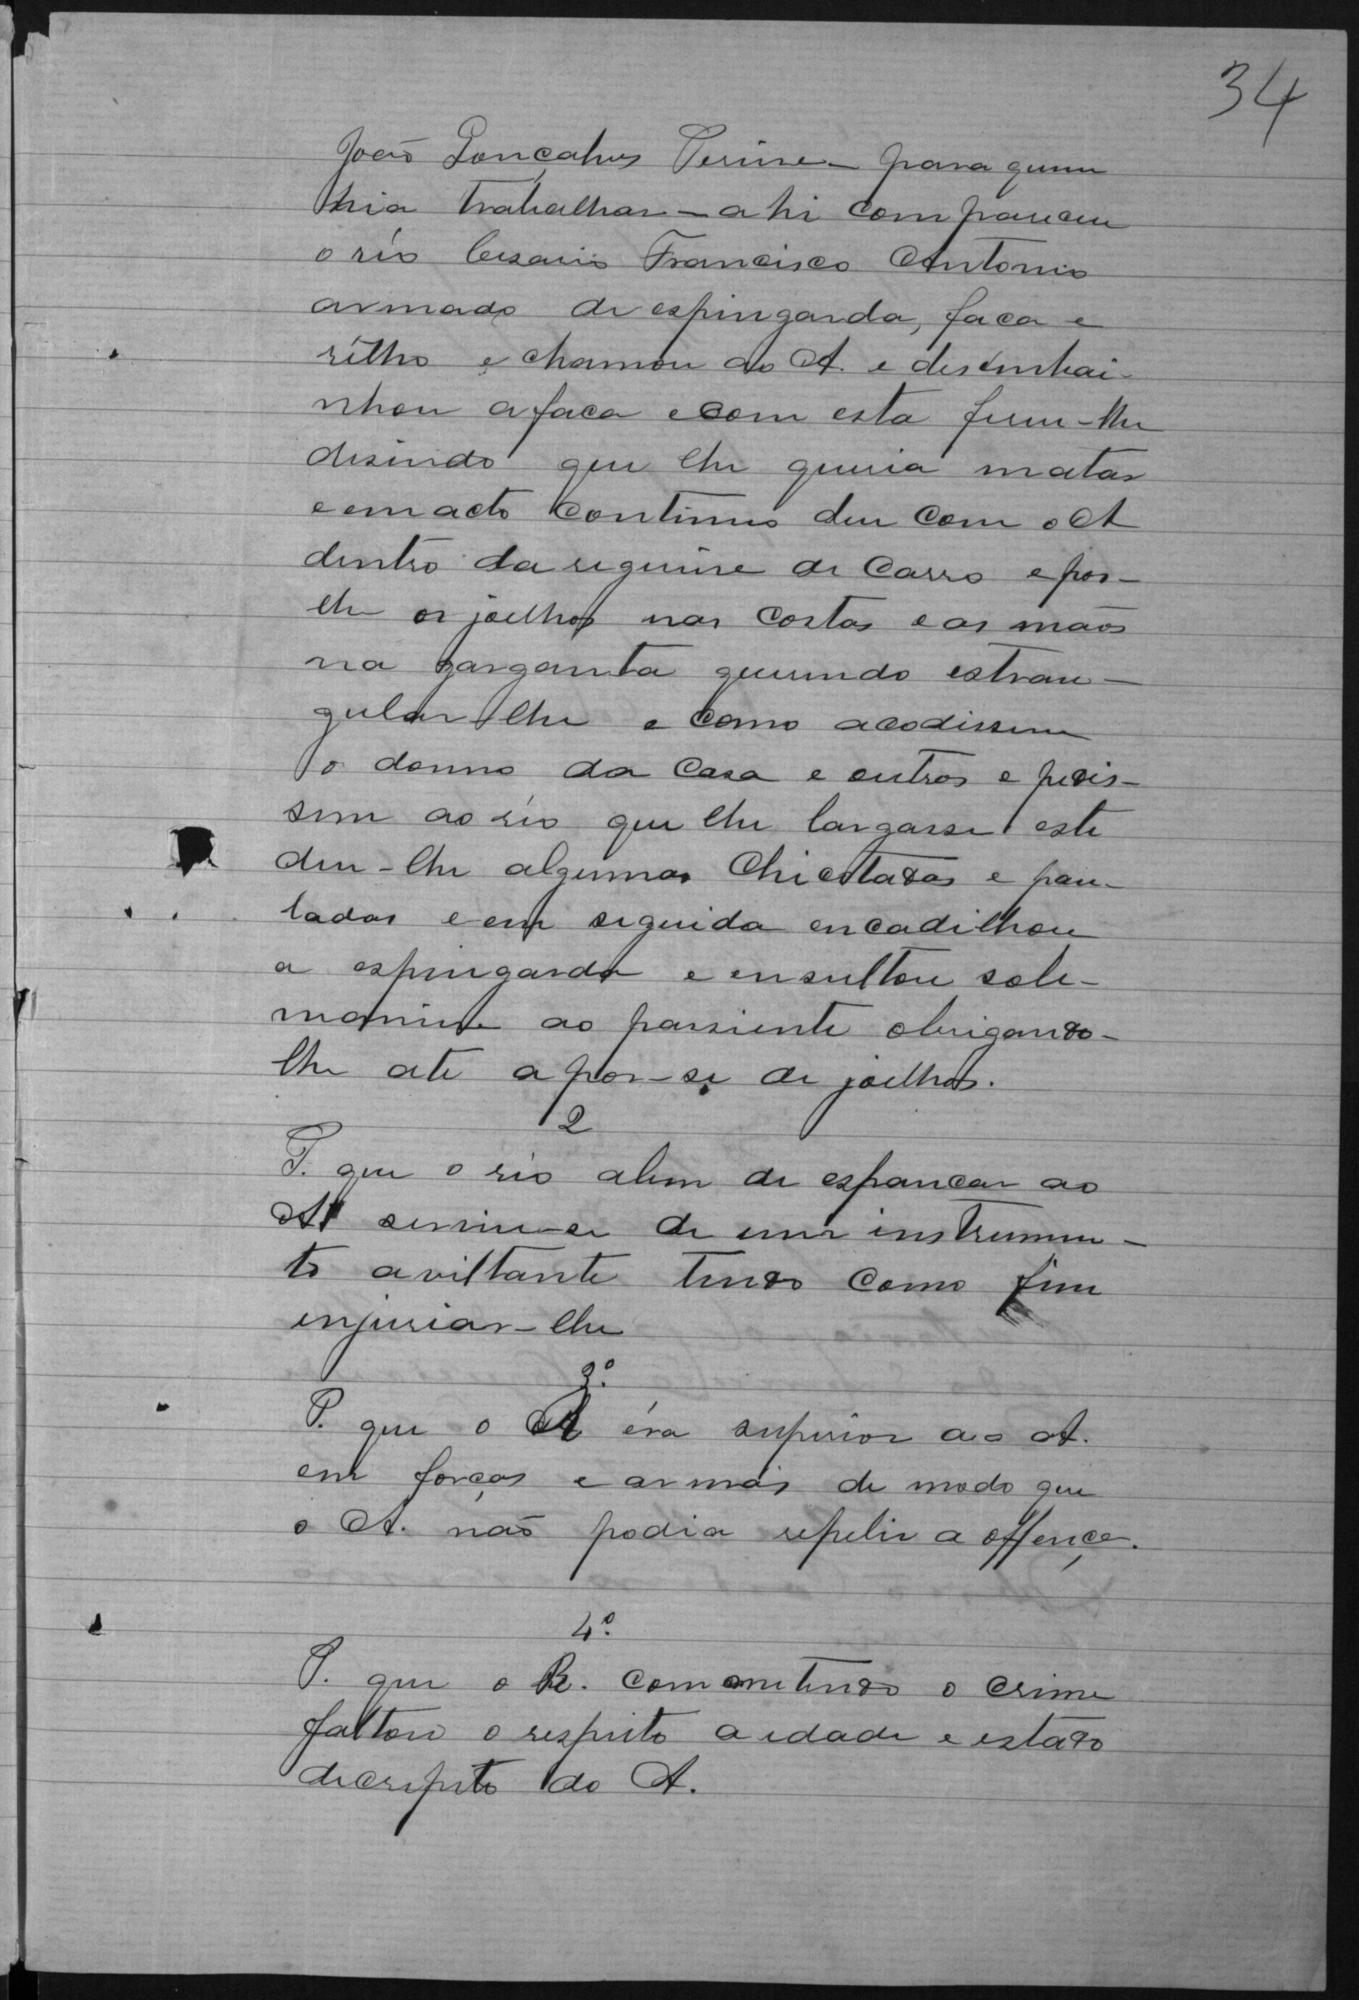 34
João Gonçalves Perine – para quem
hia trabalhar – ahi compareceu
o réo Cesario Francisco Antonio
armado de espingarda, faca e
rêlho e chamou ao A. e desembai-
nhou a faca e com esta feriu-lhe
disendo que lhe queria matar
e em acto continuo deu com o A
dentro da de carro e pos-
lhe os joelhos nas costas e as mãos
na garganta querendo estran-
gular-lhe e como acodissem
o donno da casa e outros e pedis-
sem ao réo que lhe largasse este
deu-lhe algumas chicotadas e pau-
ladas e em seguida encadilhou
a espingarda e ensultou sole-
manine ao passiente obrigando-
lhe até a por-se de joelhos.
2
P. que o réo alem de espancar ao
A serviu-se de um instrumen-
to aviltante tendo como fim
injuriar-lhe
3.º
P. que o R éra superior ao A.
em forças e armas de modo que
o A. não podia repelir a offença.
4.º
P. que o R. commetendo o crime
faltou o respeito a edade e estado
decrepito do A.